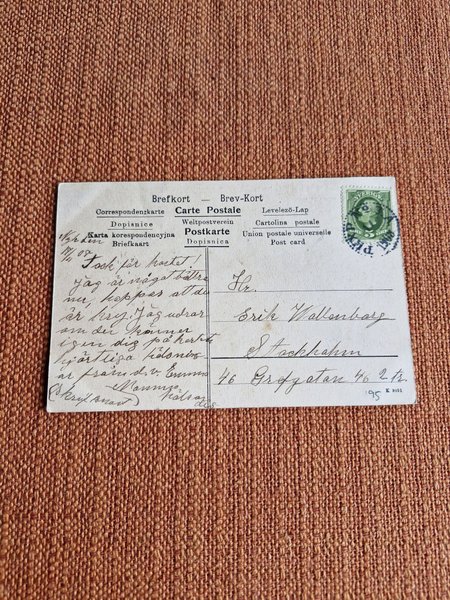 Brefkort — Brev-Kort
Correspondenzkarte Carte Postale Levelező-Lap
Dopisnice Weltpostverein Cartolina postale
Karta korespondencyjna Postkarte Union postale universelle
Briefkaart Dopisnica Post card
SVERIGE
Tack för kortet!
Jag är något bättre
nu, hoppas att du
är kry. Jag undrar
om du känner
igen dig på kortet
hjärtliga
är från d. v. Emma
Mamma
hälsar
(Kryl snart)
Hr.
Erik Wallenborg
Stockholm
46 Grefgatan 46 2 tr.
95
K